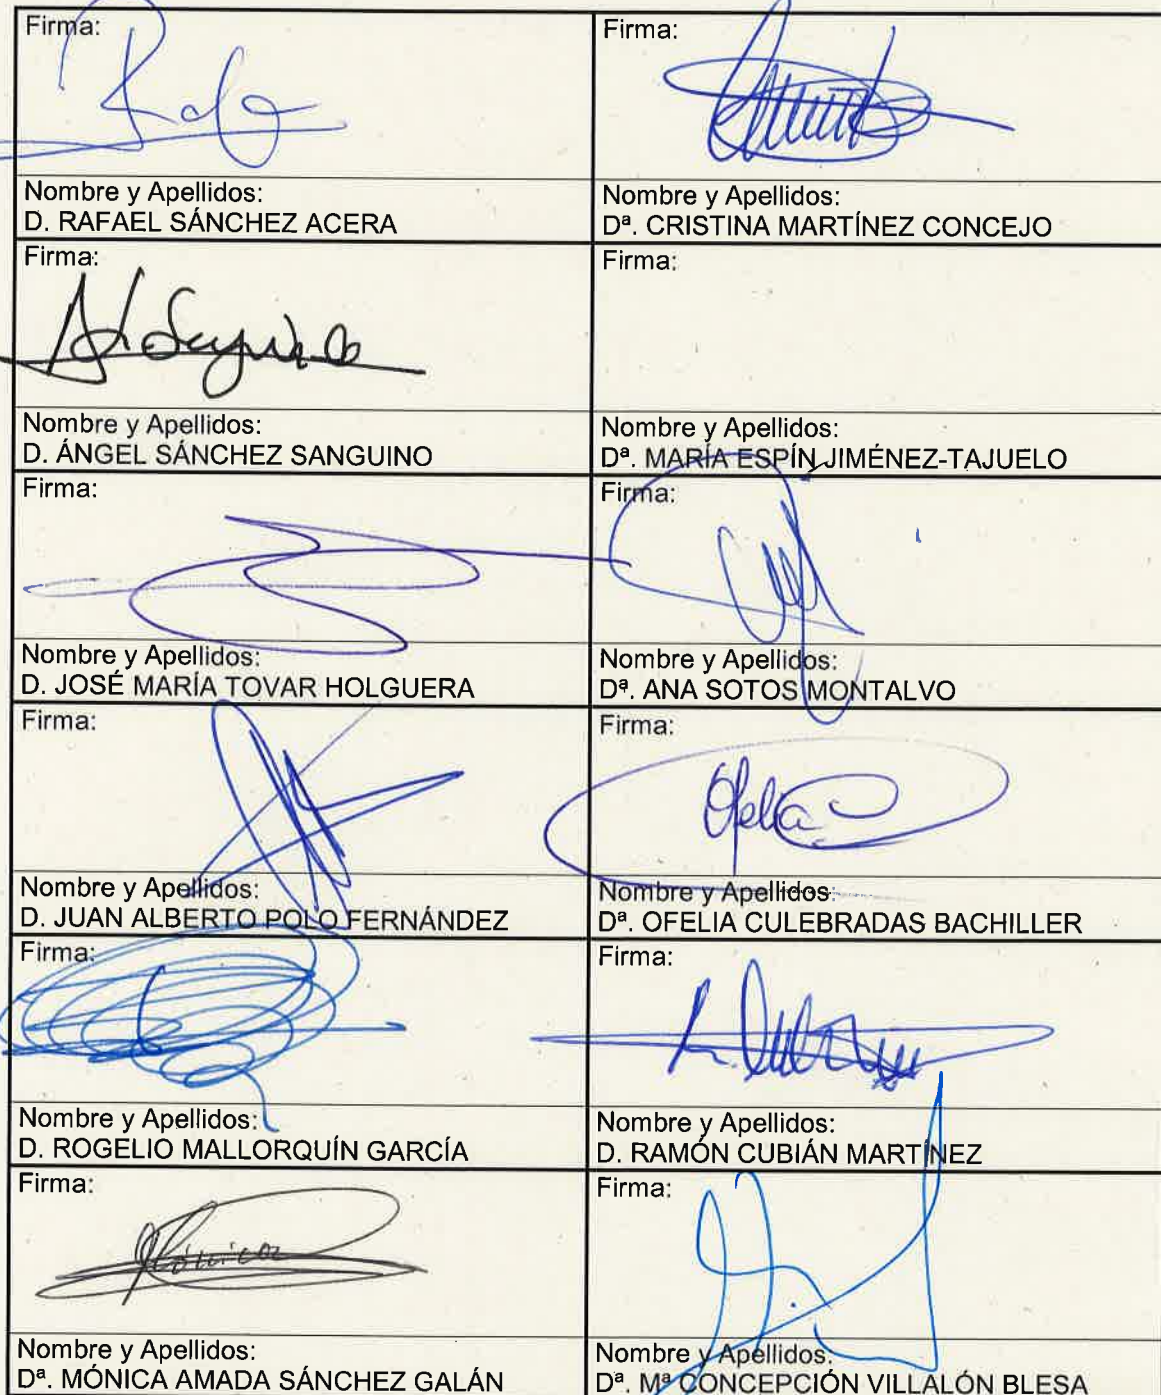 Firma:
Firma:
Rafa
Nombre y Apellidos:
D. RAFAEL SÁNCHEZ ACERA
Nombre y Apellidos:
Dª. CRISTINA MARTÍNEZ CONCEJO
Firma:
Firma:
Nombre y Apellidos:
D. ÁNGEL SÁNCHEZ SANGUINO
Nombre y Apellidos:
Dª. MARÍA ESPÍN JIMÉNEZ-TAJUELO
Firma:
Firma:
Nombre y Apellidos:
D. JOSÉ MARÍA TOVAR HOLGUERA
Nombre y Apellidos:
Dª. ANA SOTOS MONTALVO
Firma:
Firma:
Ofelia
Nombre y Apellidos:
D. JUAN ALBERTO POLO FERNÁNDEZ
Nombre y Apellidos:
Dª. OFELIA CULEBRADAS BACHILLER
Firma:
Firma:
Nombre y Apellidos:
D. ROGELIO MALLORQUÍN GARCÍA
Nombre y Apellidos:
D. RAMÓN CUBIÁN MARTÍNEZ
Firma:
Firma:
Mónica
Nombre y Apellidos:
Dª. MÓNICA AMADA SÁNCHEZ GALÁN
Nombre y Apellidos:
Dª. Mª CONCEPCIÓN VILLALÓN BLESA